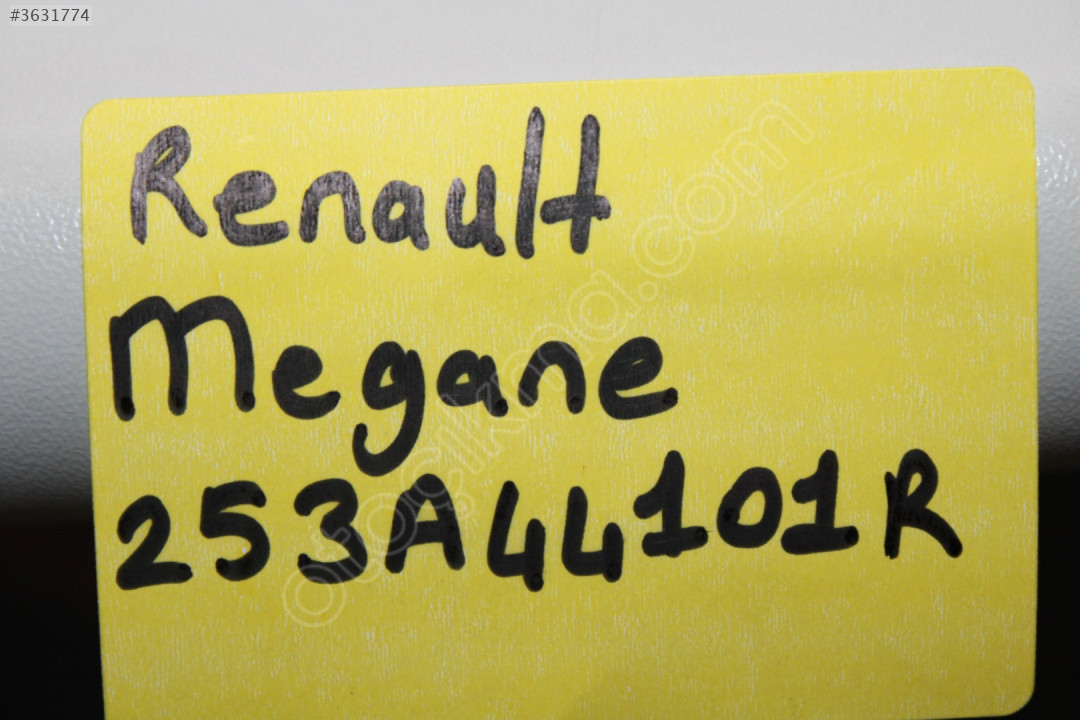 #3631774
Renault
Megane
253A44101R
otocikma.com